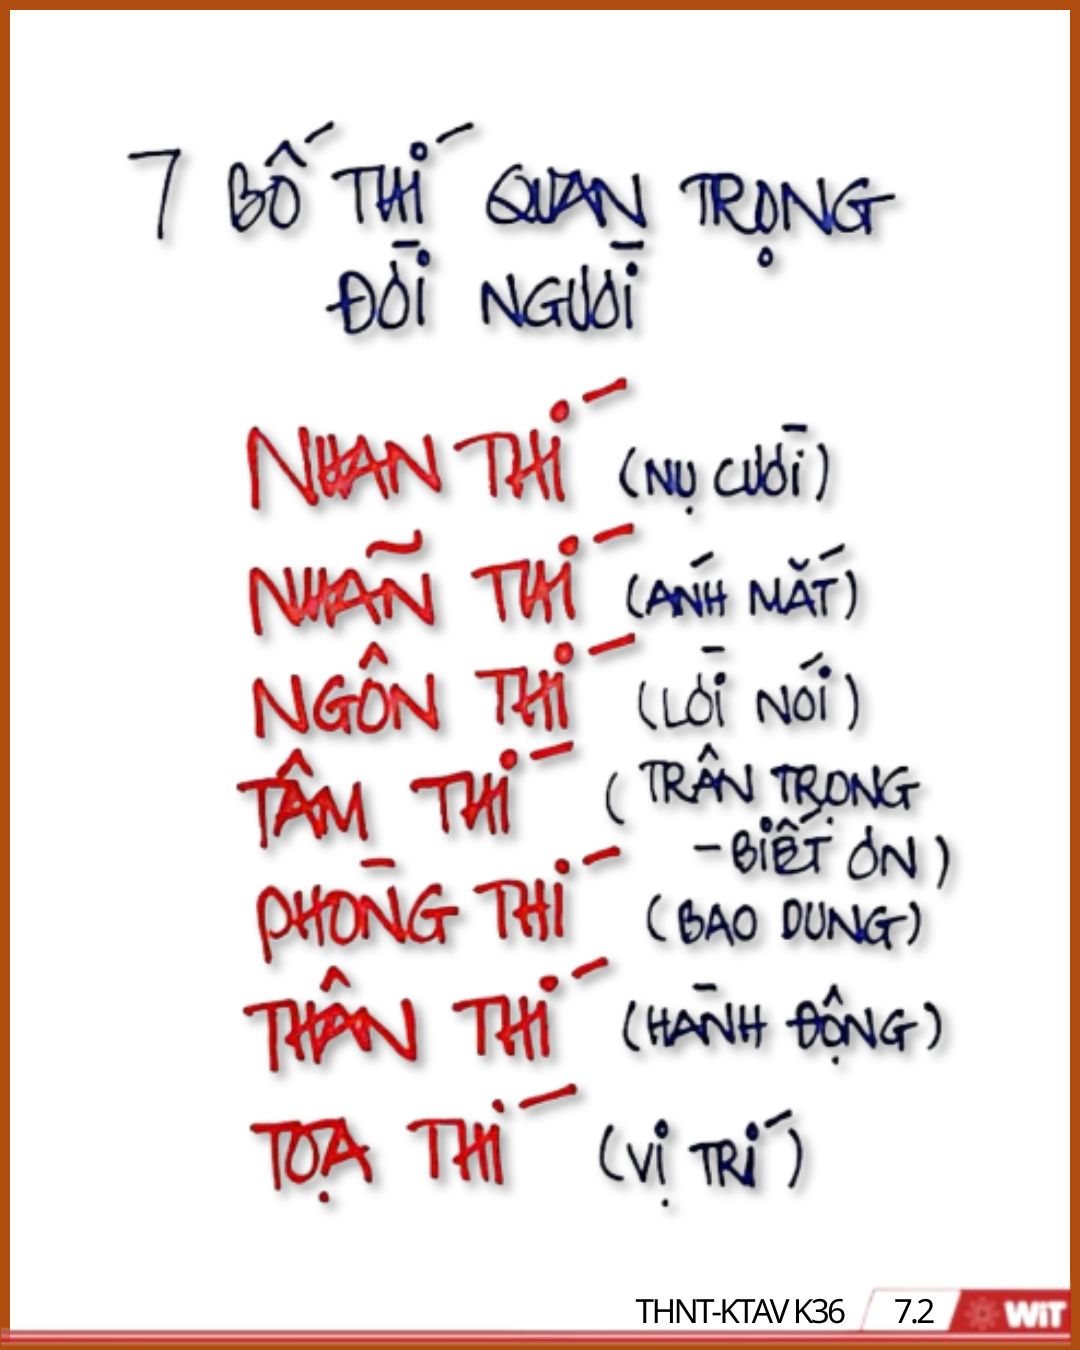 7 BỐ THÍ QUAN TRỌNG
ĐỜI NGƯỜI
NHAN THÍ (NỤ CƯỜI)
NHÃN THÍ (ÁNH MẮT)
NGÔN THÍ (LỜI NÓI)
TÂM THÍ (TRÂN TRỌNG
-BIẾT ƠN)
PHÒNG THÍ (BAO DUNG)
THÂN THÍ (HÀNH ĐỘNG)
TỌA THÍ (VỊ TRÍ)
THNT-KTAV K36 7.2 WiT